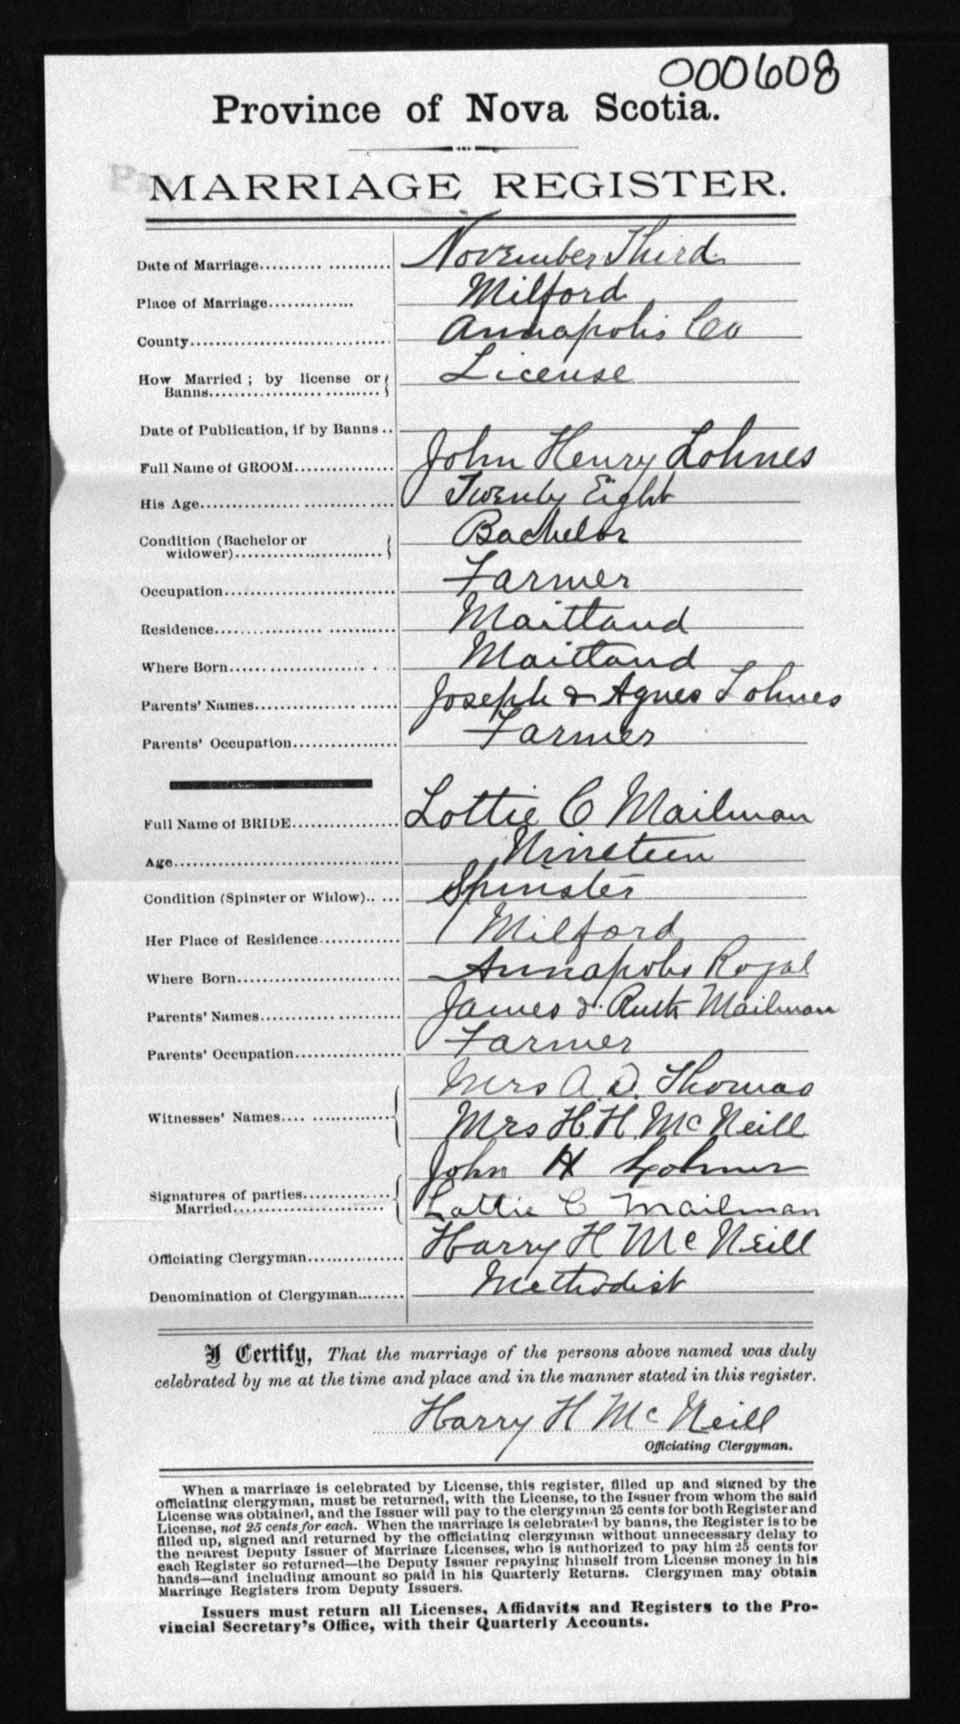 000608
Province of Nova Scotia.
MARRIAGE REGISTER.
Date of Marriage.......... ........... November Third
Place of Marriage.............. Milford
County................................. Annapolis Co
How Married; by license or License
Banns.................. .........
Date of Publication, if by Banns ..
Full Name of GROOM................ John Henry Lohnes
His Age................ ............. Twenty Eight
Condition (Bachelor or Bachelor
widower)........................
Occupation............................ Farmer
Residence................. ........... Maitland
Where Born...... ................. . . . Maitland
Parents' Names............... ...... Joseph & Agnes Lohnes
Parents' Occupation................. Farmer
Full Name of BRIDE................. Lottie C Mailman
Age..................................... Nineteen
Condition (Spinster or Widow).. ... Spinster
Her Place of Residence............. Milford
Where Born.......................... Annapolis Royal
Parents' Names............ .......... James & Ruth Mailman
Parents' Occupation................. Farmer
Mrs A. D. Thomas
Witnesses' Names.... ..............
Mrs H. H. McNeill
John H Lohnes
Signatures of parties...............
Married.......................... Lottie C Mailman
Officiating Clergyman............... Harry H McNeill
Denomination of Clergyman........ Methodist
I Certify, That the marriage of the persons above named was duly
celebrated by me at the time and place and in the manner stated in this register.
Harry H McNeill
Officiating Clergyman.
When a marriage is celebrated by License, this register, filled up and signed by the
officiating clergyman, must be returned, with the License, to the Issuer from whom the said
License was obtained, and the Issuer will pay to the clergyman 25 cents for both Register and
License, not 25 cents for each. When the marriage is celebrated by banns, the Register is to be
filled up, signed and returned by the officiating clergyman without unnecessary delay to
the nearest Deputy Issuer of Marriage Licenses, who is authorized to pay him 25 cents for
each Register so returned—the Deputy Issuer repaying himself from License money in his
hands—and including amount so paid in his Quarterly Returns. Clergymen may obtain
Marriage Registers from Deputy Issuers.
Issuers must return all Licenses, Affidavits and Registers to the Pro-
vincial Secretary's Office, with their Quarterly Accounts.